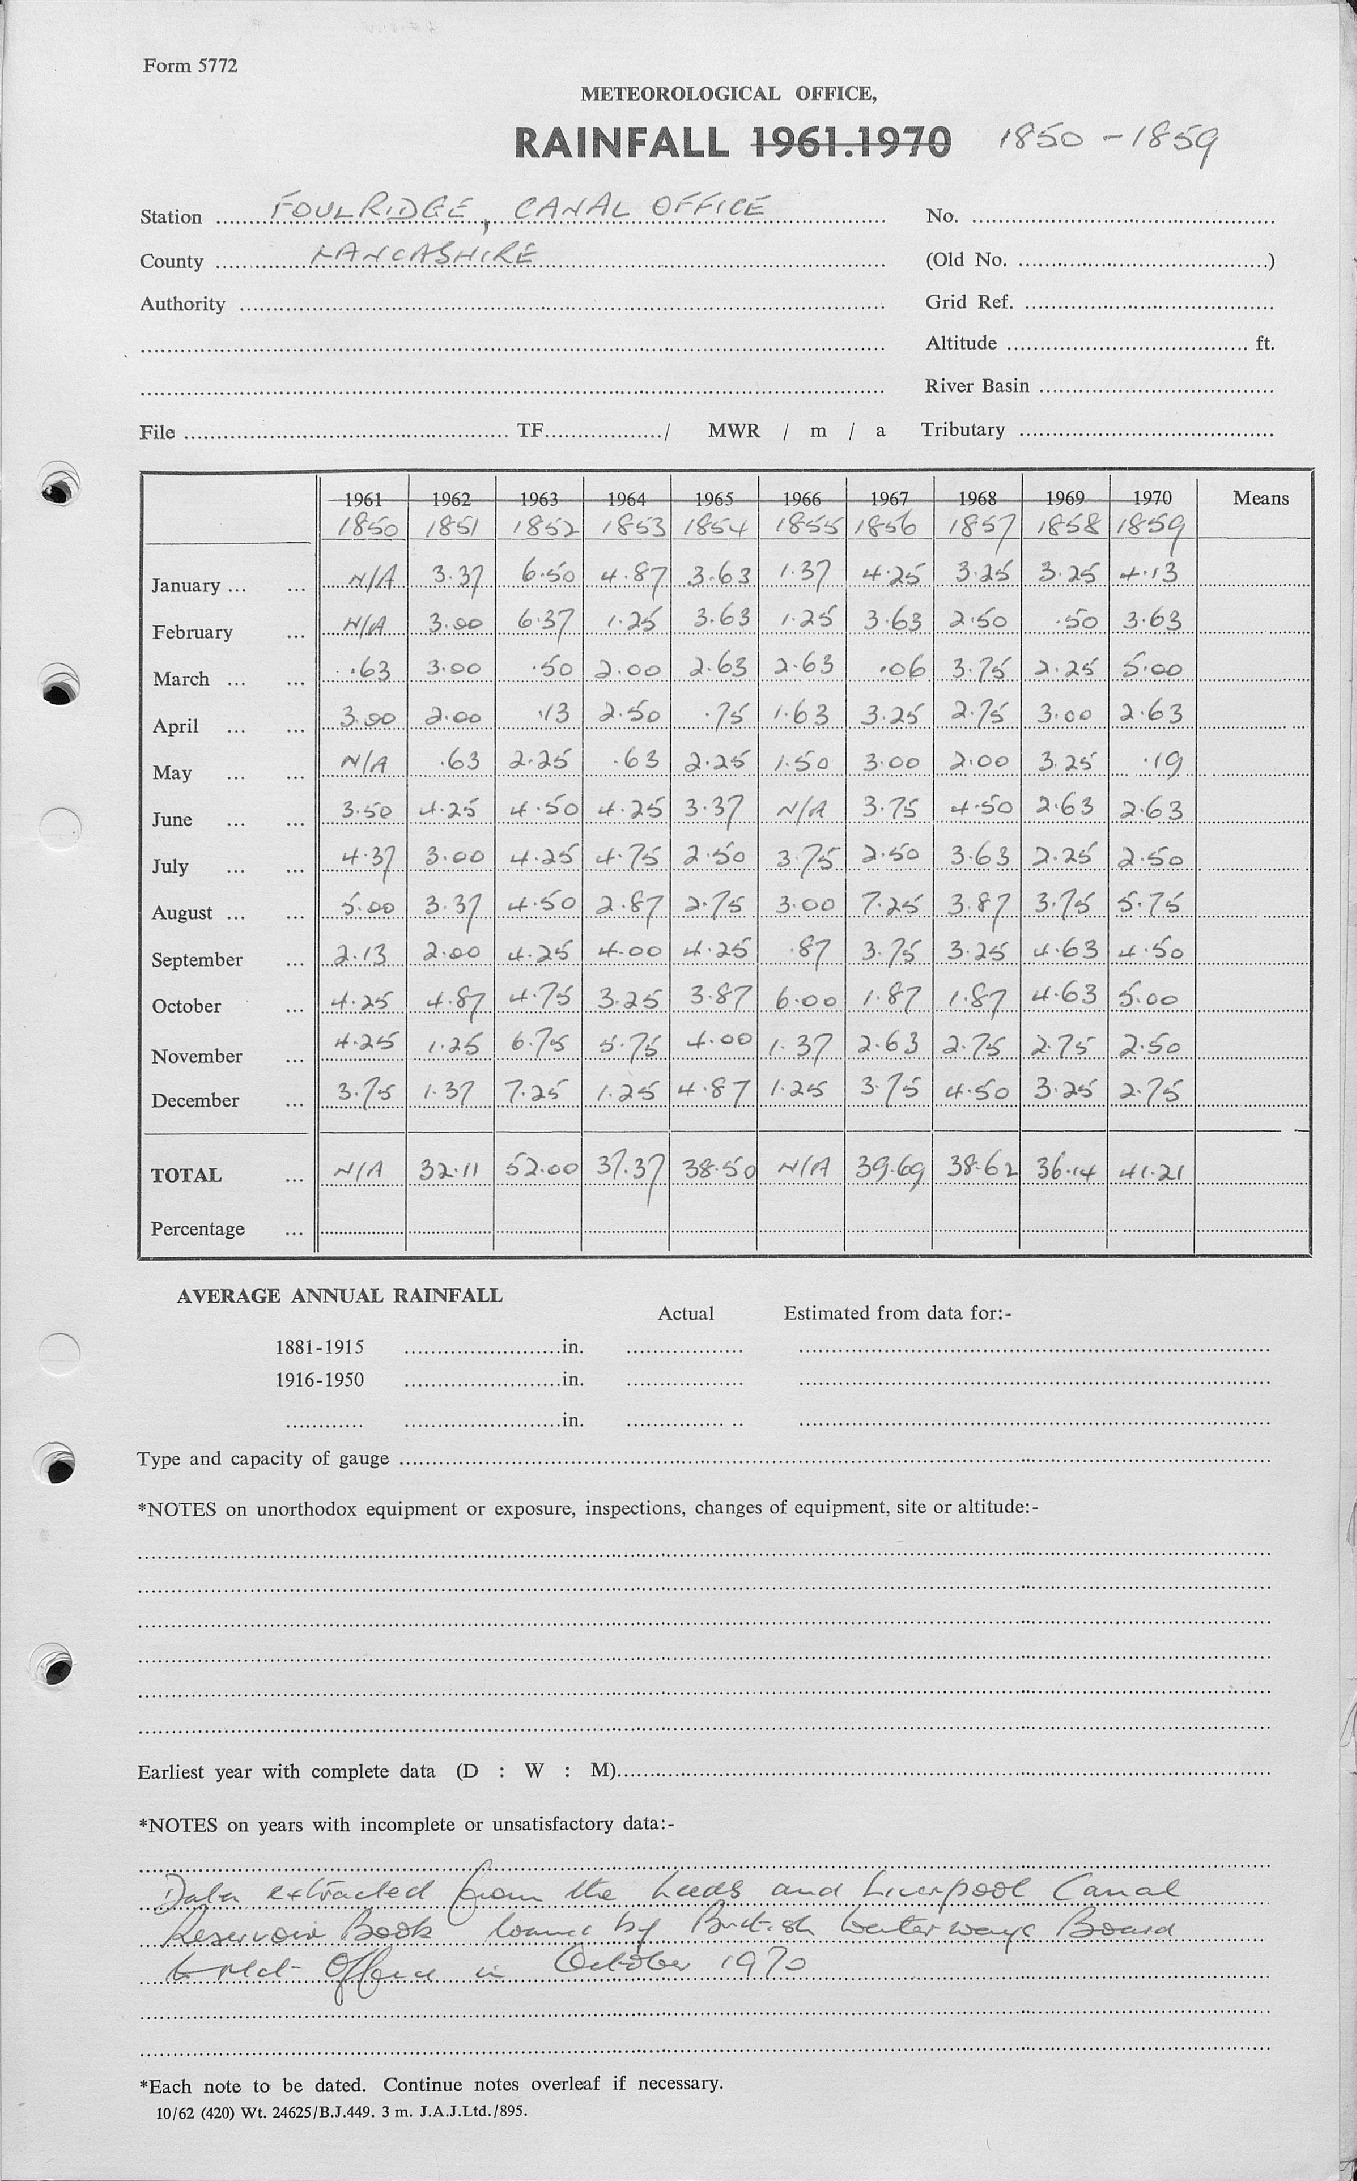 Form 5772
METEOROLOGICAL OFFICE,
RAINFALL 1961.1970 1850 - 1859
Station FOULRIDGE, CANAL OFFICE No.
County LANCASHIRE (Old No. )
Authority Grid Ref.
Altitude ft.
River Basin
File TF / MWR / m / a Tributary
1961 1962 1963 1964 1965 1966 1967 1968 1969 1970 Means
1850 1851 1852 1853 1854 1855 1856 1857 1858 1859
January ... ... N/A 3.37 6.50 4.87 3.63 1.37 4.25 3.25 3.25 4.13
February ... N/A 3.00 6.37 1.25 3.63 1.25 3.63 2.50 .50 3.63
March ... ... .63 3.00 .50 2.00 2.63 2.63 .06 3.75 2.25 5.00
April ... ... 3.00 2.00 .13 2.50 .75 1.63 3.25 2.75 3.00 2.63
May ... ... N/A .63 2.25 .63 2.25 1.50 3.00 2.00 3.25 .19
June ... ... 3.50 4.25 4.50 4.25 3.37 N/A 3.75 4.50 2.63 2.63
July ... ... 4.37 3.00 4.25 4.75 2.50 3.75 2.50 3.63 2.25 2.50
August ... ... 5.00 3.37 4.50 2.87 2.75 3.00 7.25 3.87 3.75 5.75
September ... 2.13 2.00 4.25 4.00 4.25 .87 3.75 3.25 4.63 4.50
October ... 4.25 4.87 4.75 3.25 3.87 6.00 1.87 1.87 4.63 5.00
November ... 4.25 1.25 6.75 5.75 4.00 1.37 2.63 2.75 2.75 2.50
December ... 3.75 1.37 7.25 1.25 4.87 1.25 3.75 4.50 3.25 2.75
TOTAL ... N/A 32.11 52.00 37.37 38.50 N/A 39.69 38.62 36.14 41.21
Percentage ...
AVERAGE ANNUAL RAINFALL
Actual Estimated from data for:-
1881-1915 in.
1916-1950 in.
in.
Type and capacity of gauge
*NOTES on unorthodox equipment or exposure, inspections, changes of equipment, site or altitude:-
Earliest year with complete data (D : W : M)
*NOTES on years with incomplete or unsatisfactory data:-
Data extracted from the Leeds and Liverpool Canal
Reservoir Book loaned by British Waterways Board
to Met Office in October 1970
*Each note to be dated. Continue notes overleaf if necessary.
10/62 (420) Wt. 24625/B.J.449. 3 m. J.A.J.Ltd./895.